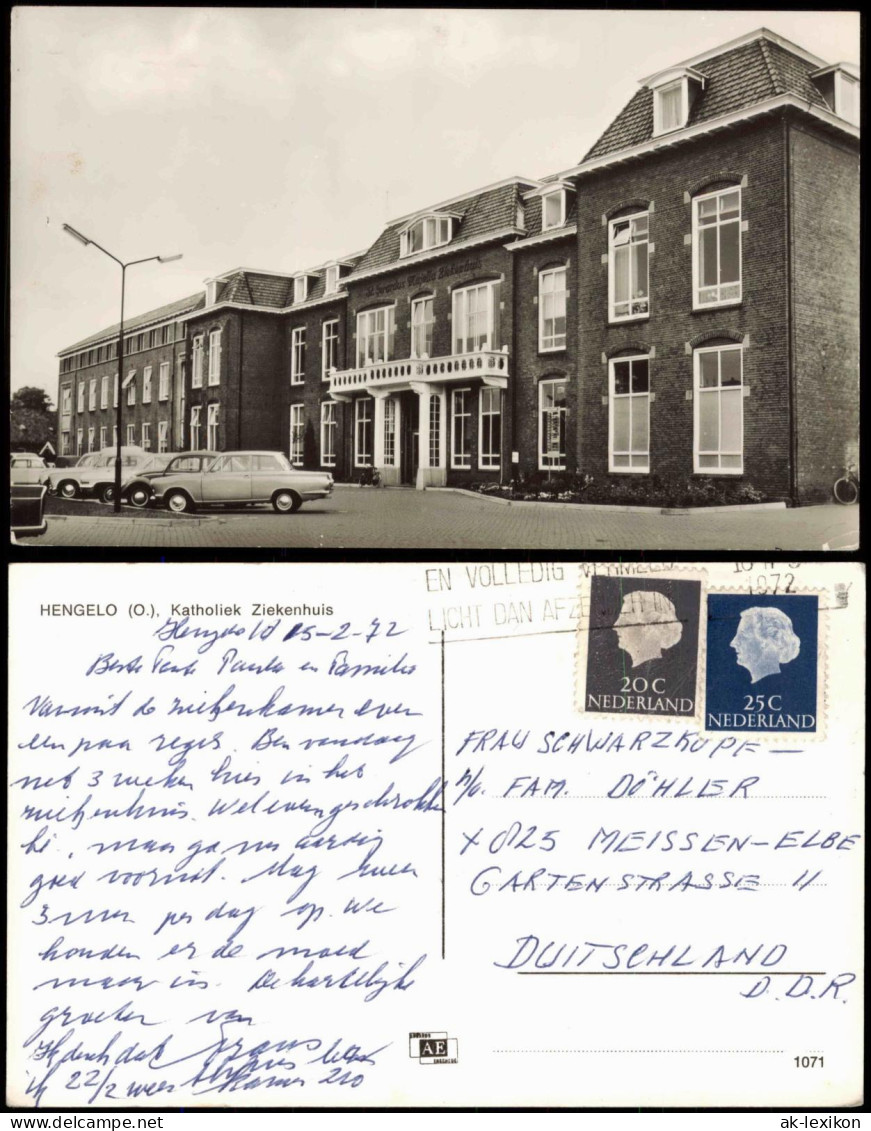 St. Gerardus Majella Ziekenhuis
HENGELO (O.), Katholiek Ziekenhuis
Hengelo 15-2-72
Beste Tante Paula en Familie
Vanuit de ziekenkamer even
een paar regels. Ben vandaag
net 3 weken hier in het
ziekenhuis. Wel even geschrokken
hè, maar ga nu aardig
goed vooruit. Mag weer
3 uur per dag op. We
houden er de moed
maar in. De hartelijke
groeten van
Ik denk dat Frans
ik 22/2 weer kamer 210
EN VOLLEDIG
LICHT DAN AFZ
1972
20C
NEDERLAND
25C
NEDERLAND
FRAU SCHWARZKOPF
p/a. FAM. DÖHLER
X 8125 MEISSEN-ELBE
GARTENSTRASSE 11
DUITSCHLAND
D.D.R.
AE
1071
ak-lexikon.com